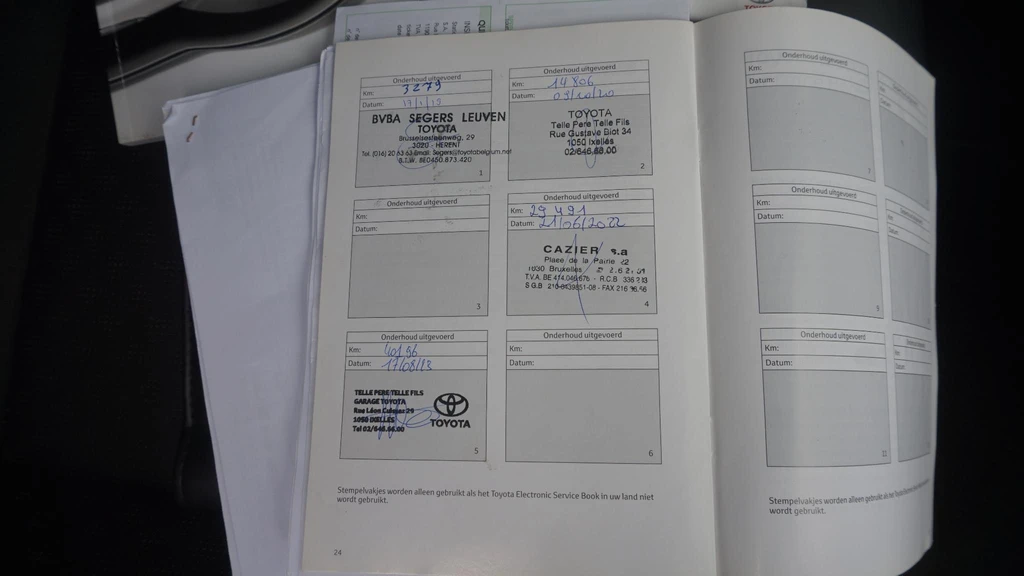 Onderhoud uitgevoerd
Km: 3279
Datum:
BVBA SEGERS LEUVEN
TOYOTA
Brusselsesteenweg, 29
3020 - HERENT
Tel. (016) 20 63 63 Email: Segers@toyotabelgium.net
B.T.W. BE0450.873.420
1
Onderhoud uitgevoerd
Km: 14806
Datum: 03/10/20
TOYOTA
Telle Pere Telle Fils
Rue Gustave Biot 34
1050 Ixelles
02/646.66.00
2
Onderhoud uitgevoerd
Km:
Datum:
3
Onderhoud uitgevoerd
Km: 29 491
Datum: 21/06/2022
CAZIER s.a
Place de la Patrie 22
1030 Bruxelles
T.V.A. BE 414.046.676 - R.C.B
S G.B - FAX 216 96.56
4
Onderhoud uitgevoerd
Km: 40196
Datum: 17/08/23
TELLE PERE TELLE FILS
GARAGE TOYOTA
Rue Léon Cuissez 29
1050 IXELLES
Tel 02/646.66.00
TOYOTA
5
Onderhoud uitgevoerd
Km:
Datum:
6
Stempelvakjes worden alleen gebruikt als het Toyota Electronic Service Book in uw land niet
wordt gebruikt.
24
Onderhoud uitgevoerd
Km:
Datum:
7
Onderhoud uitgevoerd
Km:
Datum:
9
Onderhoud uitgevoerd
Km:
Datum:
11
Stempelvakjes worden alleen gebruikt als het Toyota
wordt gebruikt.